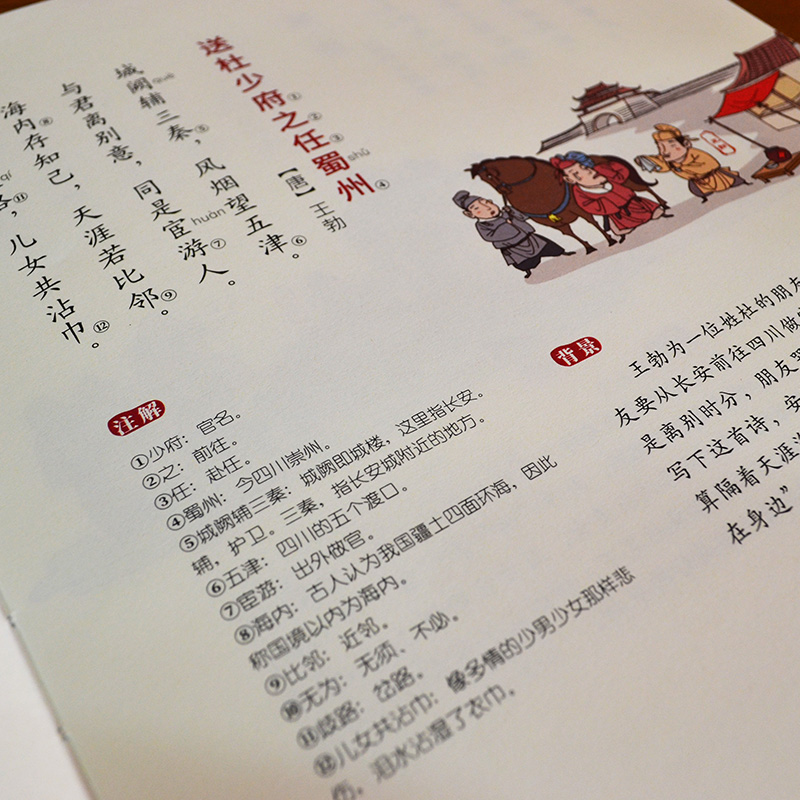 送杜少府①之②任③蜀州④
shǔ
【唐】王勃
城阙辅三秦，⑤风烟望五津。⑥
què
与君离别意，同是宦游⑦人。
huàn
海内⑧存知己，天涯若比邻。⑨
⑪儿女共沾巾。⑫
注解
①少府：官名。
②之：前往。
③任：赴任。
④蜀州：今四川崇州。
⑤城阙辅三秦：城阙即城楼，这里指长安。
辅，护卫。三秦，指长安城附近的地方。
⑥五津：四川的五个渡口。
⑦宦游：出外做官。
⑧海内：古人认为我国疆土四面环海，因此
称国境以内为海内。
⑨比邻：近邻。
⑩无为：无须、不必。
⑪歧路：岔路。
⑫儿女共沾巾：像多情的少男少女那样悲
伤，泪水沾湿了衣巾。
背景
王勃为一位姓杜的朋友
友要从长安前往四川做
是离别时分，朋友
写下这首诗，安
算隔着天涯
在身边”